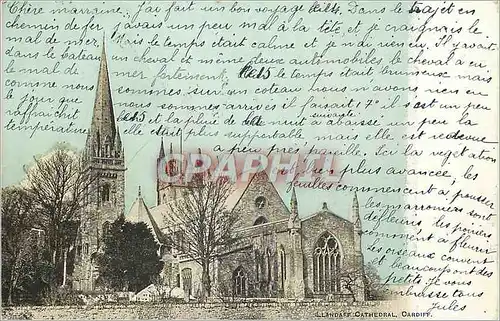 Chère marraine, J'ai fait un bon voyage le 14. Dans le trajet en
chemin de fer j'avais un peu mal à la tête, et je craignais le
mal de mer. Mais le temps était calme et je n'ai rien eu. Il y avait
dans le bateau un cheval et même deux automobiles, le cheval a eu
le mal de mer fortement. Le 15 le temps était brumeux mais
comme nous sommes sur un coteau nous n'avons rien eu
le jour que nous sommes arrivés il faisait 17° il s'est un peu
raffraichit le 15 et la pluie de la nuit suivante a abaissé un peu la
température elle était plus supportable mais elle est redevenue
à peu près pareille. Ici la vegetation
est plus avancée, les
feuilles commencent à pousser
les marronniers sont
defleuris les poiriers
commencent à fleurir
les oiseaux couvent
et beaucoup ont des
petits. Je vous
embrasse tous
Jules
CPAPHIL.COM
LLANDAFF CATHEDRAL, CARDIFF.